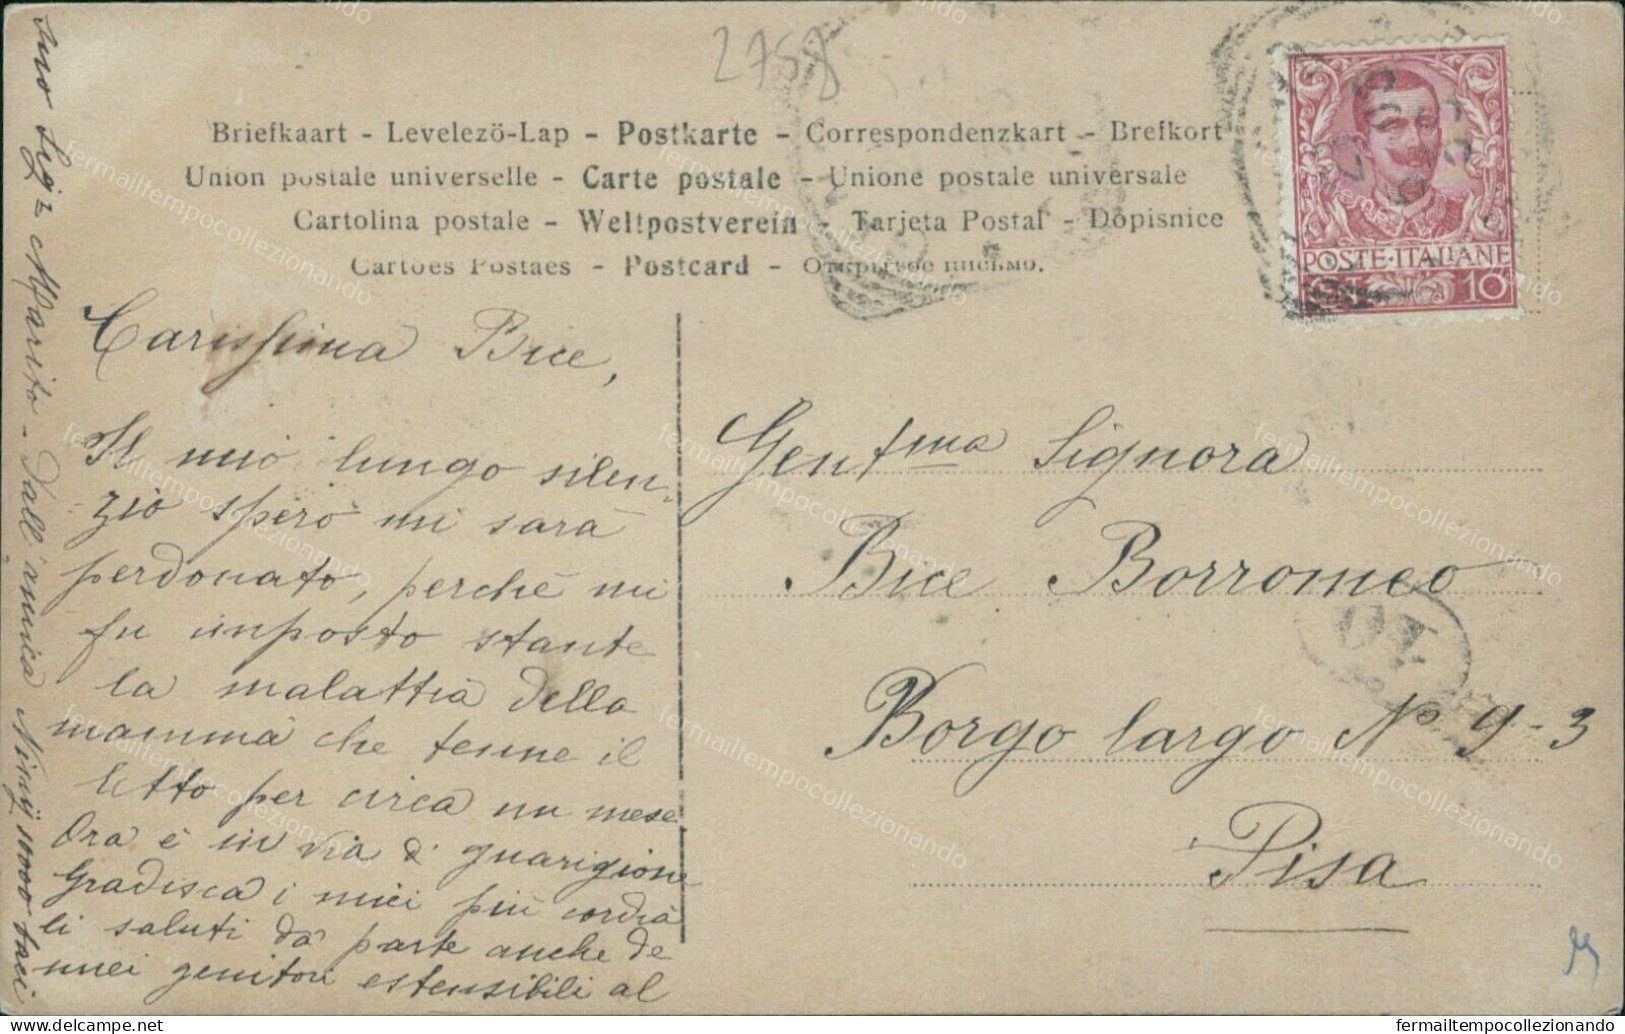 2758
Briefkaart - Levelezö-Lap - Postkarte - Correspondenzkart - Brefkort
Union postale universelle - Carte postale - Unione postale universale
Cartolina postale - Weltpostverein - Tarjeta Postal - Dopisnice
Cartoes Postaes - Postcard - Открытое письмо.
POSTE·ITALIANE
10
Carissima Bice,
Il mio lungo silen-
zio spero mi sarà
perdonato, perchè mi
fu imposto stante
la malattia della
mamma che tenne il
letto per circa un mese
Ora è in via di guarigione
Gradisca i miei più cordia
li saluti da parte anche de
miei genitori estensibili al
suo Sigr Marito - Dall'amica
1000 baci
Gentma Signora
Bice Borromeo
Borgo largo No 9-3
Pisa
fermailtempocollezionando